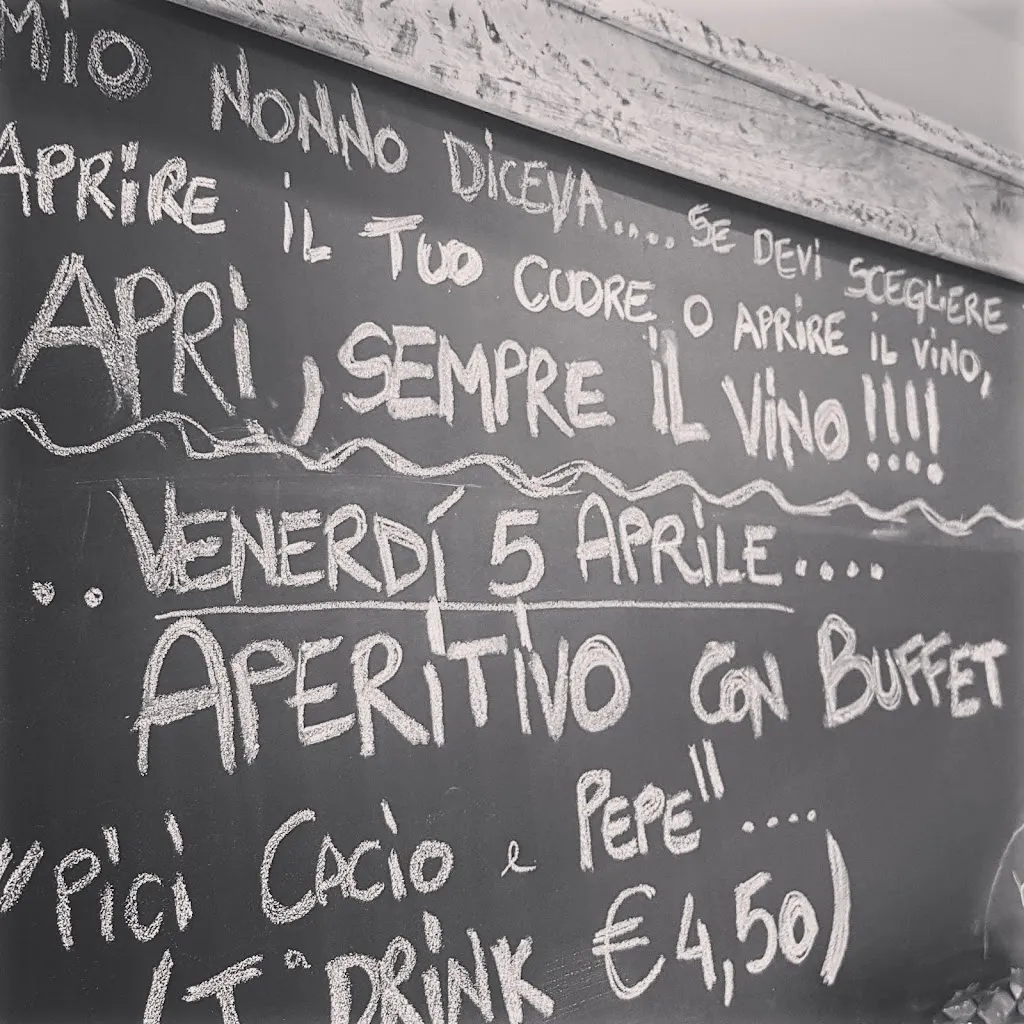 MIO NONNO DICEVA.... SE DEVI SCEGLIERE
APRIRE IL TUO CUORE O APRIRE IL VINO,
APRI, SEMPRE IL VINO!!!!
.. VENERDÍ 5 APRILE....
APERITIVO CON BUFFET
"PICI CACIO e PEPE"....
DRINK €4,50)